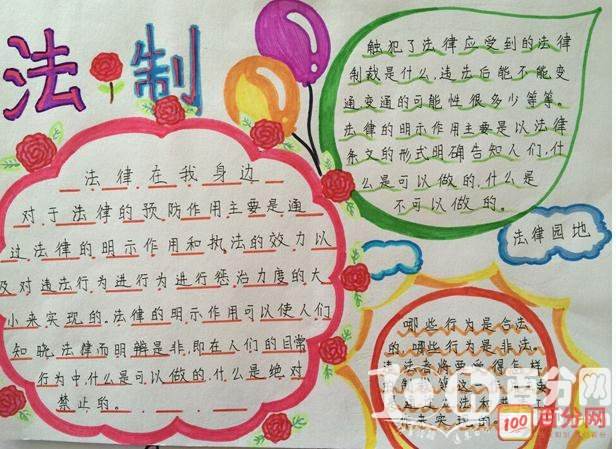 法制
法律在我身边
对于法律的预防作用主要是通
过法律的明示作用和执法的效力以
及对违法行为进行为进行惩治力度的大
小来实现的.法律的明示作用可以使人们
知晓.法律而明辨是非,即在人们的日常
行为中.什么是可以做的.什么是绝对
禁止的。
触犯了法律应受到的法律
制裁是什么.违法后能不能变
通变通的可能性很多少等等。
法律的明示作用主要是以法律
条文的形式明确告知人们.什
么是可以做的.什么是
不可以做的。
法律园地
哪些行为是合法
的.哪些行为是非法。
违法者将要受得怎样
来实现的
100
百分网